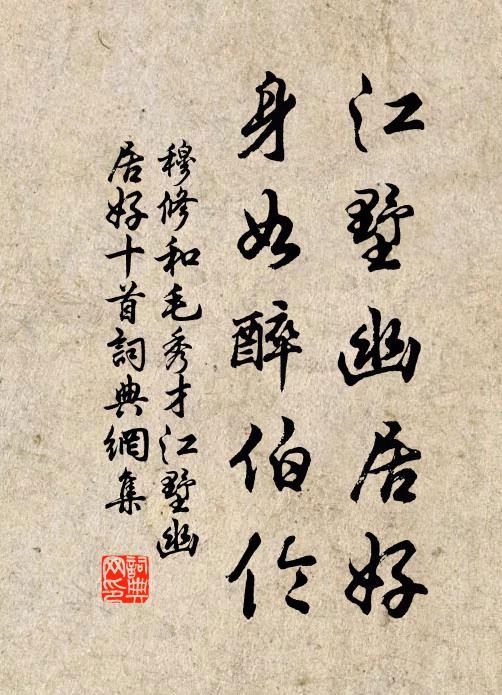 江墅幽居好
身如醉伯伶
穆修和毛秀才江墅幽
居好十首詞典網集
詞典網印